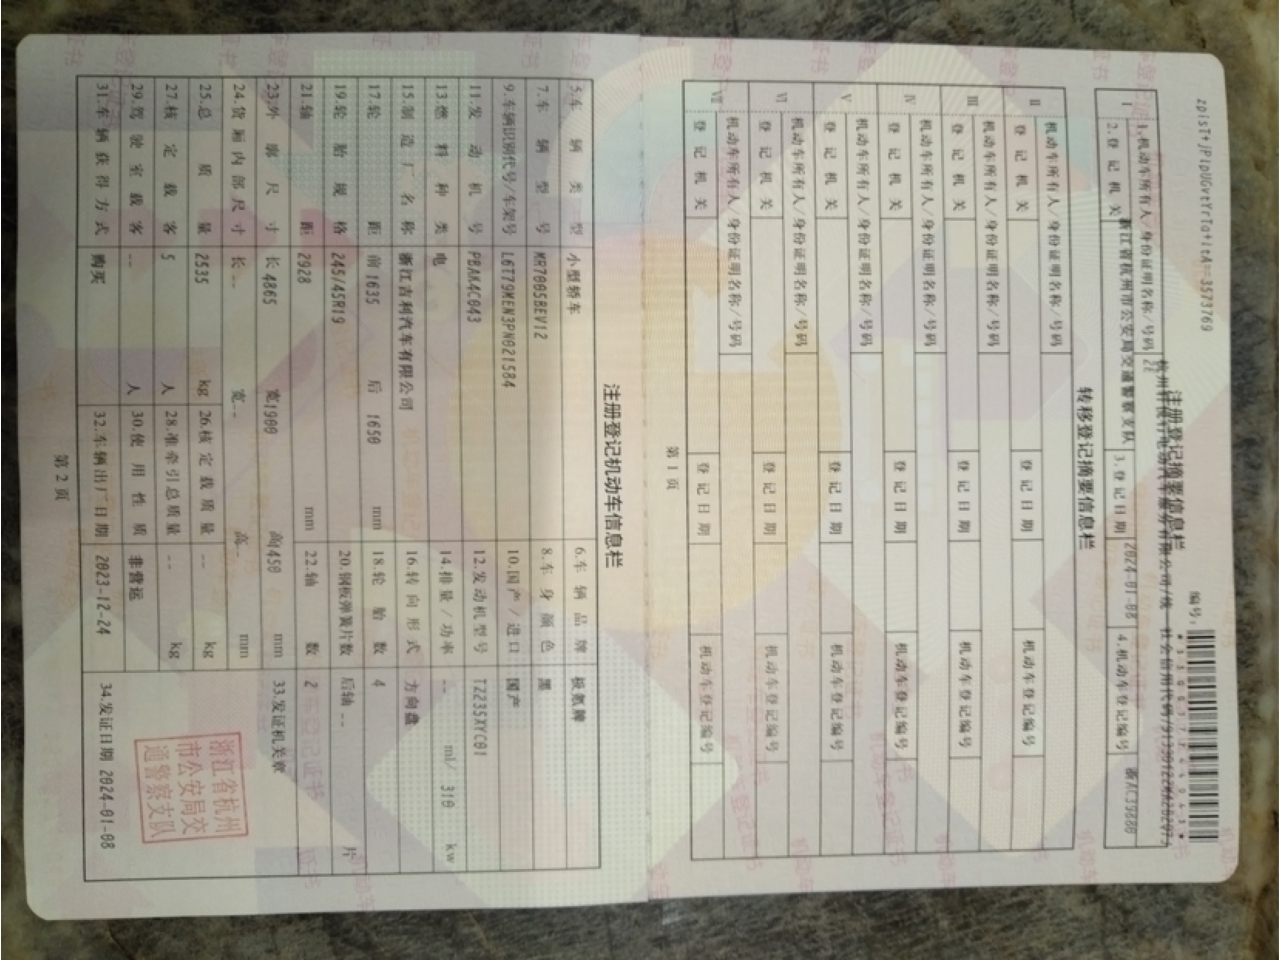 zpisT+jPlpUGvtYrTa+ltA==3573769
编号:
注册登记摘要信息栏
I 1.机动车所有人/身份证明名称/号码
2.登记机关 浙江省杭州市公安局交通警察支队 3.登记日期 2024-01-08 4.机动车登记编号
转移登记摘要信息栏
II 机动车所有人/身份证明名称/号码
登记机关 登记日期 机动车登记编号
III 机动车所有人/身份证明名称/号码
登记机关 登记日期 机动车登记编号
IV 机动车所有人/身份证明名称/号码
登记机关 登记日期 机动车登记编号
V 机动车所有人/身份证明名称/号码
登记机关 登记日期 机动车登记编号
VI 机动车所有人/身份证明名称/号码
登记机关 登记日期 机动车登记编号
VII 机动车所有人/身份证明名称/号码
登记机关 登记日期 机动车登记编号
第1页
注册登记机动车信息栏
5.车辆类型 小型轿车 6.车辆品牌 极氪牌
7.车辆型号 MR7005BEV12 8.车身颜色 黑
9.车辆识别代号/车架号 L6T79MEN3PN021584 10.国产/进口 国产
11.发动机号 PBAK4C043 12.发动机型号 TZ235XYC01
13.燃料种类 电 14.排量/功率 -- ml/ 310 kw
15.制造厂名称 浙江吉利汽车有限公司 16.转向形式 方向盘
17.轮距 前 1635 后 1650 mm 18.轮胎数 4
19.轮胎规格 245/45R19 20.钢板弹簧片数 后轴 -- 片
21.轴距 2928 mm 22.轴数 2
23.外廓尺寸 长 4865 宽 1900 高 1450 mm 33.发证机关章
24.货厢内部尺寸 长 -- 宽 -- 高 -- mm
25.总质量 2535 kg 26.核定载质量 -- kg
27.核定载客 5 人 28.准牵引总质量 -- kg
29.驾驶室载客 -- 人 30.使用性质 非营运
31.车辆获得方式 购买 32.车辆出厂日期 2023-12-24 34.发证日期 2024-01-08
浙江省杭州
市公安局交
通警察支队
第2页